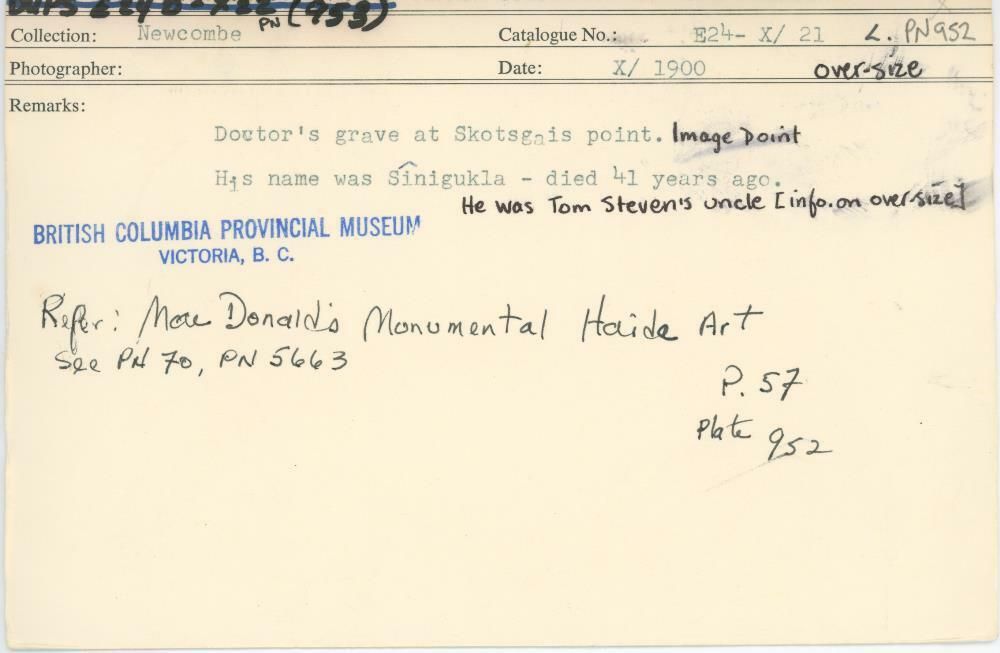 PN (953)
Collection: Newcombe Catalogue No.: E24- X/ 21 L. PN952
Photographer: Date: X/ 1900 over-size
Remarks:
Doctor's grave at Skotsgais point. Image Point
His name was Sînigukla - died 41 years ago.
He was Tom Steven's uncle [info. on over-size]
BRITISH COLUMBIA PROVINCIAL MUSEUM
VICTORIA, B. C.
Refer: Mac Donald's Monumental Haida Art
See PN 70, PN 5663
P. 57
Plate 952